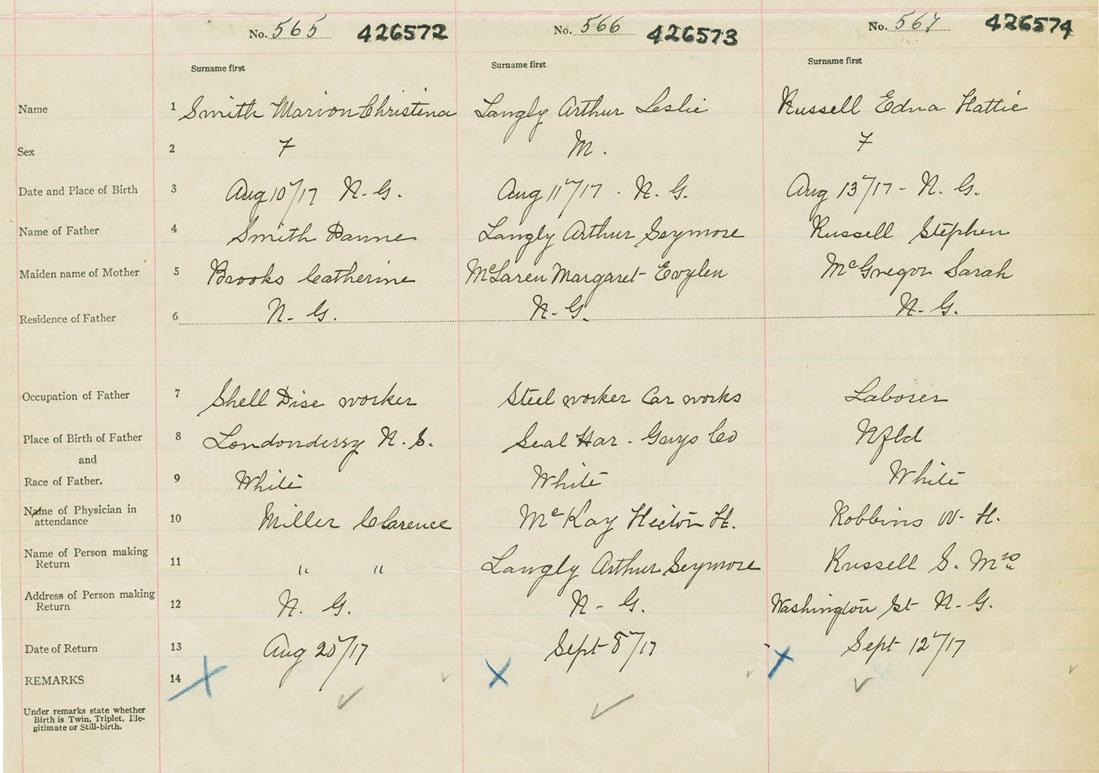 No. 565 426572 No. 566 426573 No. 567 426574
Surname first Surname first Surname first
Name 1 Smith Marion Christina Langly Arthur Leslie Russell Edna Hattie
Sex 2 F M. F
Date and Place of Birth 3 Aug 10"/17 N. G. Aug 11"/17 - N. G. Aug 13"/17 - N. G.
Name of Father 4 Smith Langly Arthur Seymore Russell Stephen
Maiden name of Mother 5 Brooks Catherine McLaren Margaret Evylen McGregor Sarah
Residence of Father 6 N. G. N. G. N. G.
Occupation of Father 7 Shell Disc worker Steel worker Car works Laborer
Place of Birth of Father 8 Londonderry N. S. Seal Har - Guys Co Nfld
and
Race of Father. 9 White White White
Name of Physician in
attendance 10 Miller Clarence McKay Hector H. Robbins W. H.
Name of Person making
Return 11 " " Langly Arthur Seymore Russell S. Mrs
Address of Person making
Return 12 N. G. N - G. Washington St N. G.
Date of Return 13 Aug 20"/17 Sept 8"/17 Sept 12"/17
REMARKS 14
Under remarks state whether
Birth is Twin, Triplet, Ille-
gitimate or Still-birth.